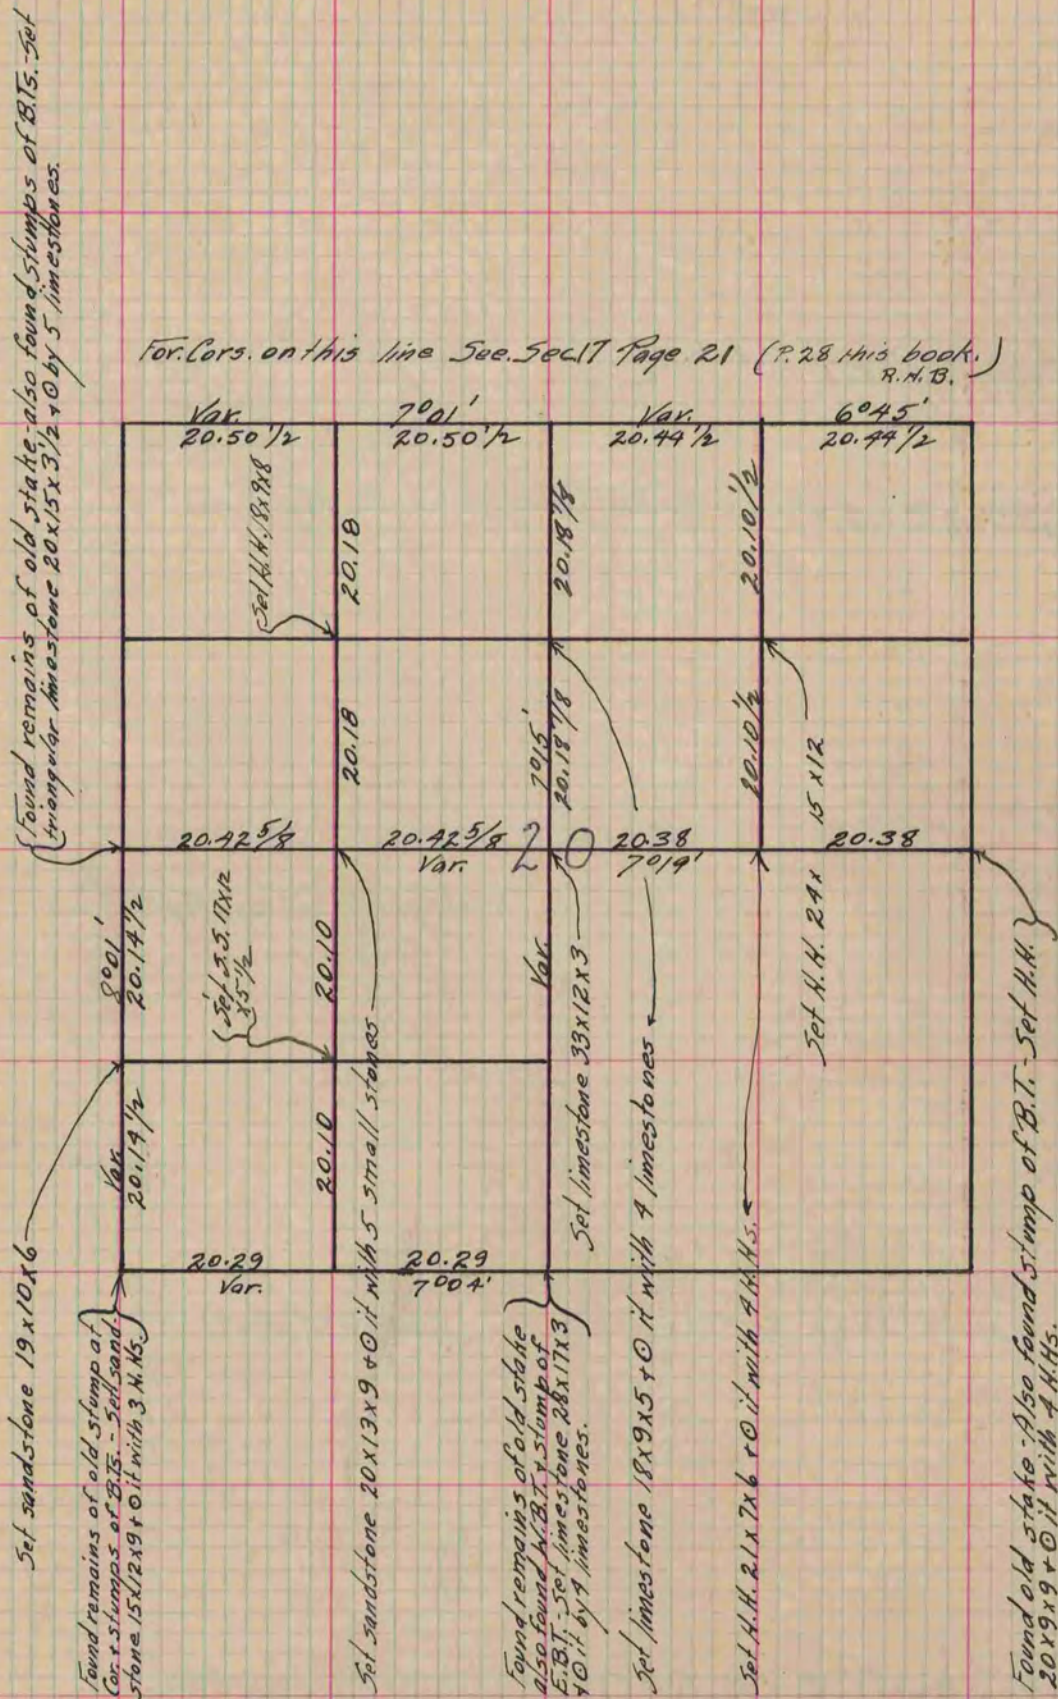 {Found remains of old stake-also found stumps of B.Ts.-Set
triangular limestone 20x15x3 1/2 + O by 5 limestones.
For. Cors. on this line See. Sec 17 Page 21 (P. 28 this book.)
R.H.B.
Var. 7°01' Var. 6°45'
20.50 1/2 20.50 1/2 20.44 1/2 20.44 1/2
Set H.H. 18x9x8
20.18 20.18 7/8 20.10 1/2
20.18 7°15' 20.18 7/8 20.10 1/2
15 x12
20.42 5/8 20.42 5/8 20 20.38 20.38
Var. 7°19'
8°01'
20.14 1/2
{Set S.S. 17x12
x5 1/2
20.10 Var.
Set H.H. 24x
Var.
20.14 1/2
20.10
20.29 20.29
Var. 7°04'
Set sandstone 19x10x6
Found remains of old stump at
Cor. + stumps of B.Ts. - Set sand-
stone 15x12x9 + O it with 3 H.Hs.
Set sandstone 20x13x9 + O it with 5 small stones
Found remains of old stake
also found W.B.T. + stump of
E.B.T. - Set limestone 28x17x3
+ O it by 4 limestones.
Set limestone 33x12x3
Set limestone 18x9x5 + O it with 4 limestones
Set H.H. 21x7x6 + O it with 4 H.Hs.
Found old stake - Also found stump of B.T. - Set H.H.
20x9x9 + O it with 4 H.Hs.